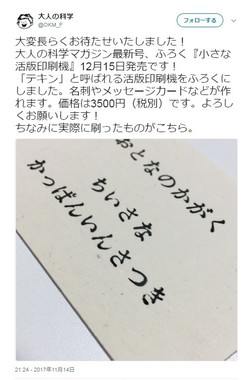 大人の科学
@OKM_F
大変長らくお待たせいたしました！
大人の科学マガジン最新号、ふろく『小さな
活版印刷機』12月15日発売です！
「テキン」と呼ばれる活版印刷機をふろくに
しました。名刺やメッセージカードなどが作
れます。価格は3500円（税別）です。よろし
くお願いします！
ちなみに実際に刷ったものがこちら。
おとなのかがく
ちいさな
かっぱんいんさつき
21:24 - 2017年11月14日